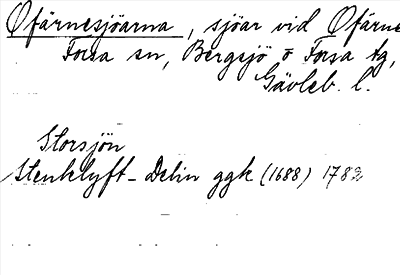 Öfärnesjöarna, sjöar vid Öfärne
Forsa sn, Bergsjö o Forsa tg,
Gävleb. l.
Storsjön
Stenklyft - Delin ggk (1688) 1782